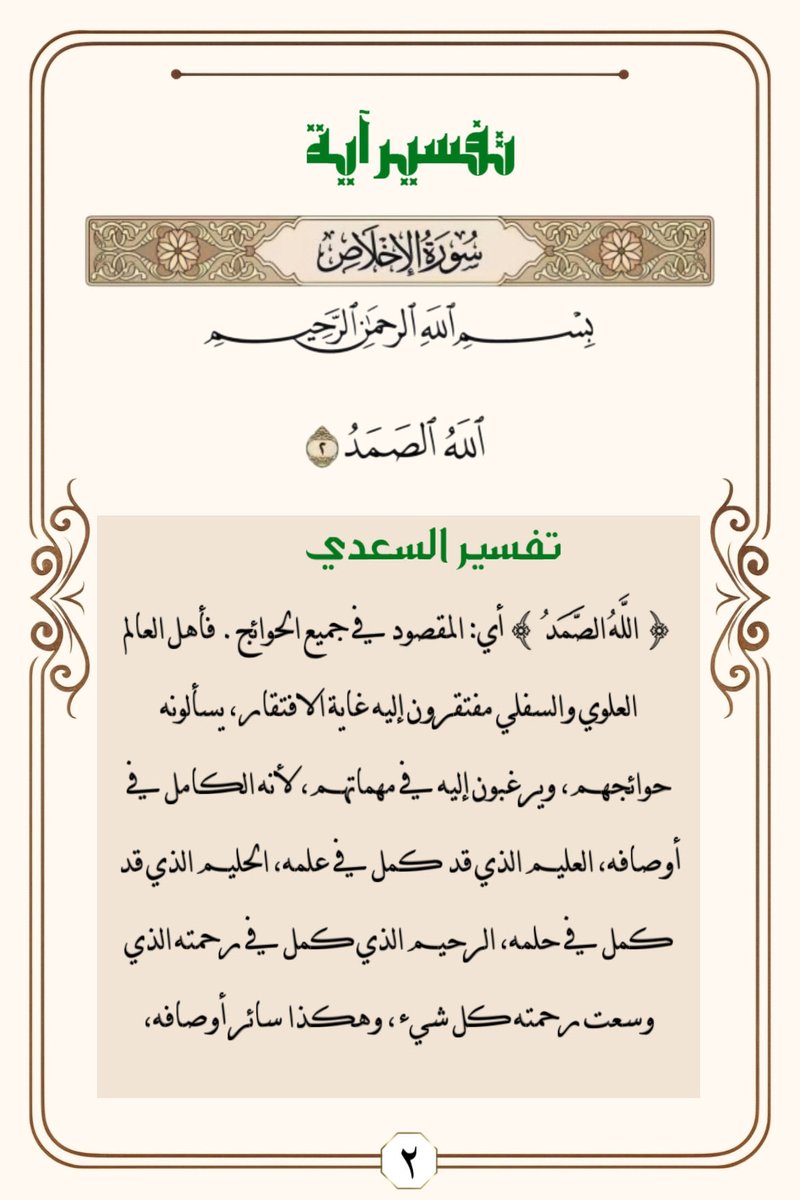 تفسير آية
سُورَةُ الإِخْلَاصِ
بِسْمِ ٱللَّهِ ٱلرَّحْمَٰنِ ٱلرَّحِيمِ
ٱللَّهُ ٱلصَّمَدُ ٢
تفسير السعدي
﴿ اللَّهُ الصَّمَدُ ﴾ أي: المقصود في جميع الحوائج . فأهل العالم
العلوي والسفلي مفتقرون إليه غاية الافتقار، يسألونه
حوائجهم، ويرغبون إليه في مهماتهم، لأنه الكامل في
أوصافه، العليم الذي قد كمل في علمه، الحليم الذي قد
كمل في حلمه، الرحيم الذي كمل في رحمته الذي
وسعت رحمته كل شيء، وهكذا سائر أوصافه،
٢